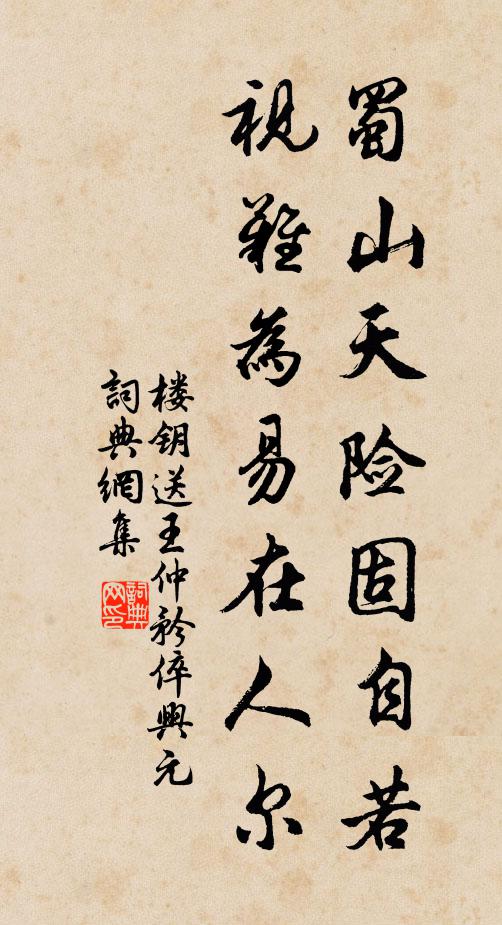 蜀山天险固自若
视难为易在人尔
楼钥送王仲矜倅興元
詞典網集
詞典网印